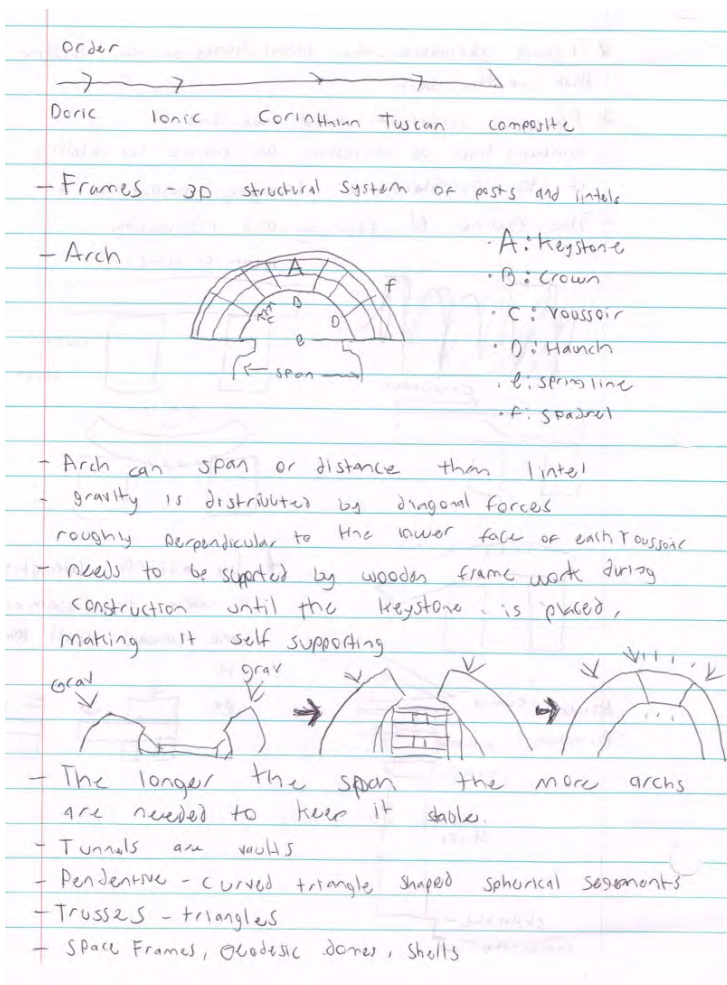 order
Doric Ionic Corinthian Tuscan composite
- Frames - 3D structural system of posts and lintels
- Arch
A
B
C
D
e
f
span
· A: Keystone
· B: Crown
· C: Voussoir
· D: Haunch
· e: spring line
· f: spadrel
- Arch can span or distance than lintel
- gravity is distributed by diagonal forces
roughly perpendicular to the lower face of each voussoir
- needs to be supported by wooden frame work during
construction until the keystone is placed,
making it self supporting
Grav grav
- The longer the span the more archs
are needed to keep it stable.
- Tunnels are vaults
- Pendentive - curved triangle shaped spherical segements
- Trusses - triangles
- Space Frames, Geodesic domes, Shells